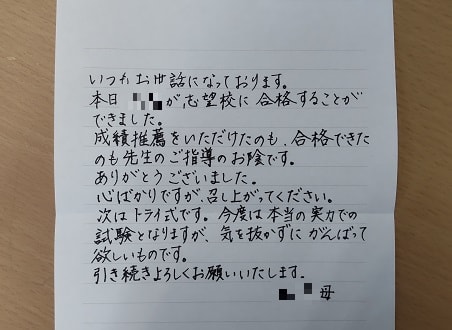 いつもお世話になっております。
本日 が、志望校に合格することが
できました。
成績推薦をいただけたのも、合格できた
のも先生のご指導のお陰です。
ありがとうございました。
心ばかりですが、召し上がってください。
次はトライ式です。今度は本当の実力での
試験となりますが、気を抜かずにがんばって
欲しいものです。
引き続きよろしくお願いいたします。
母